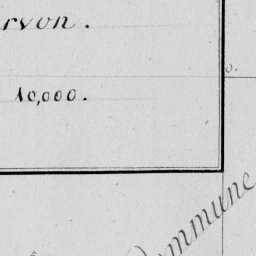 rvon.
10,000.
ommune